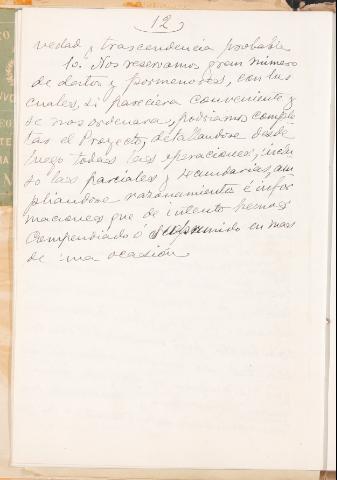 12
vedad y trascendencia probable
10. Nos reservamos gran número
de datos y pormenores, con los
cuales, si pareciera conveniente y
se nos ordenara, podríamos comple
tar el Proyecto, detallandose desde
luego todas las operaciones, inclu
so las parciales y secundarias, am
pliandose razonamientos é infor
maciones que de intento hemos
compendiado ó suprimido en mas
de una ocasión